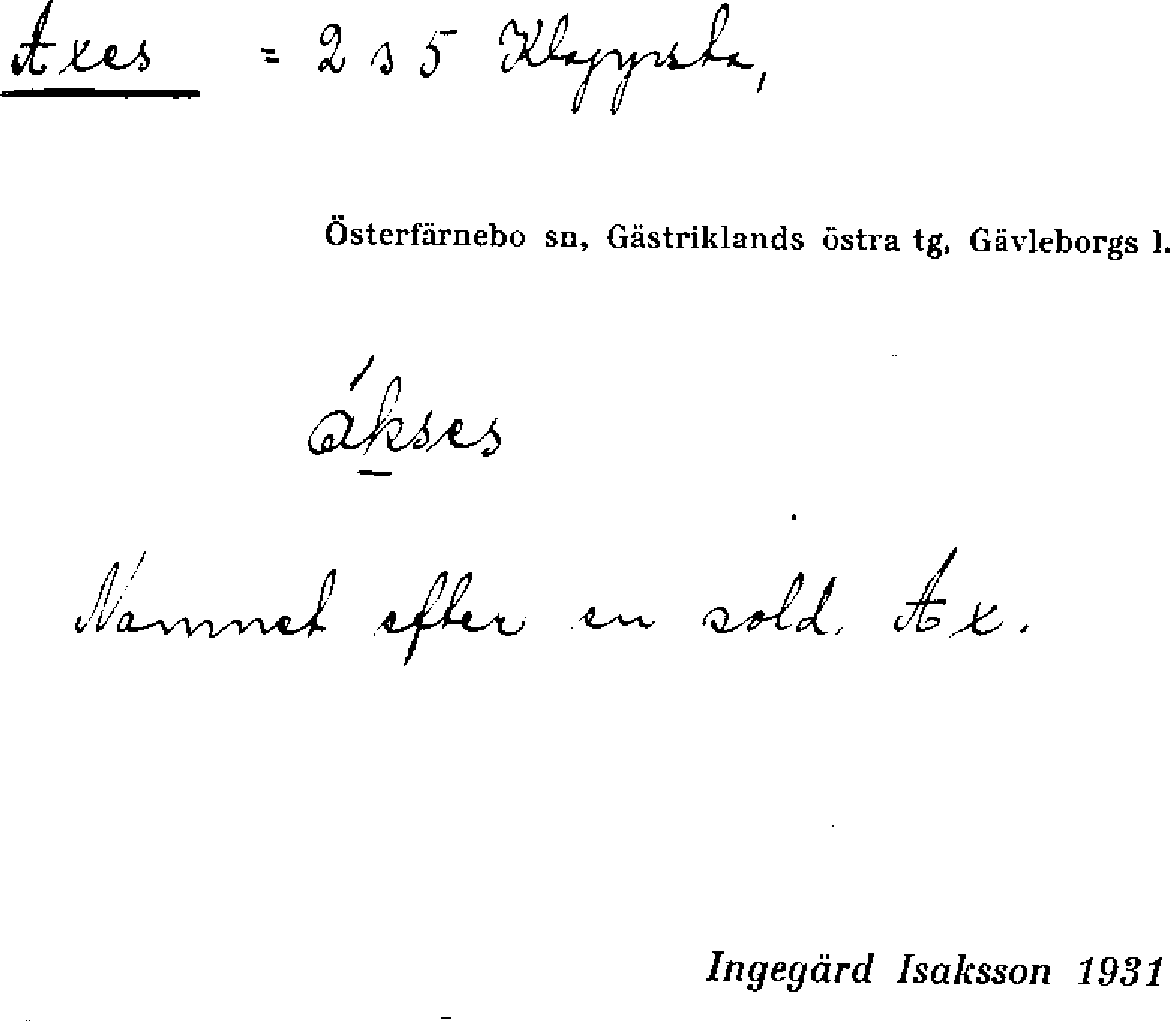 Axes = 2 s 5 Klappsta,
Österfärnebo sn, Gästriklands östra tg, Gävleborgs l.
ákses
Namnet efter en sold. Ax.
Ingegärd Isaksson 1931